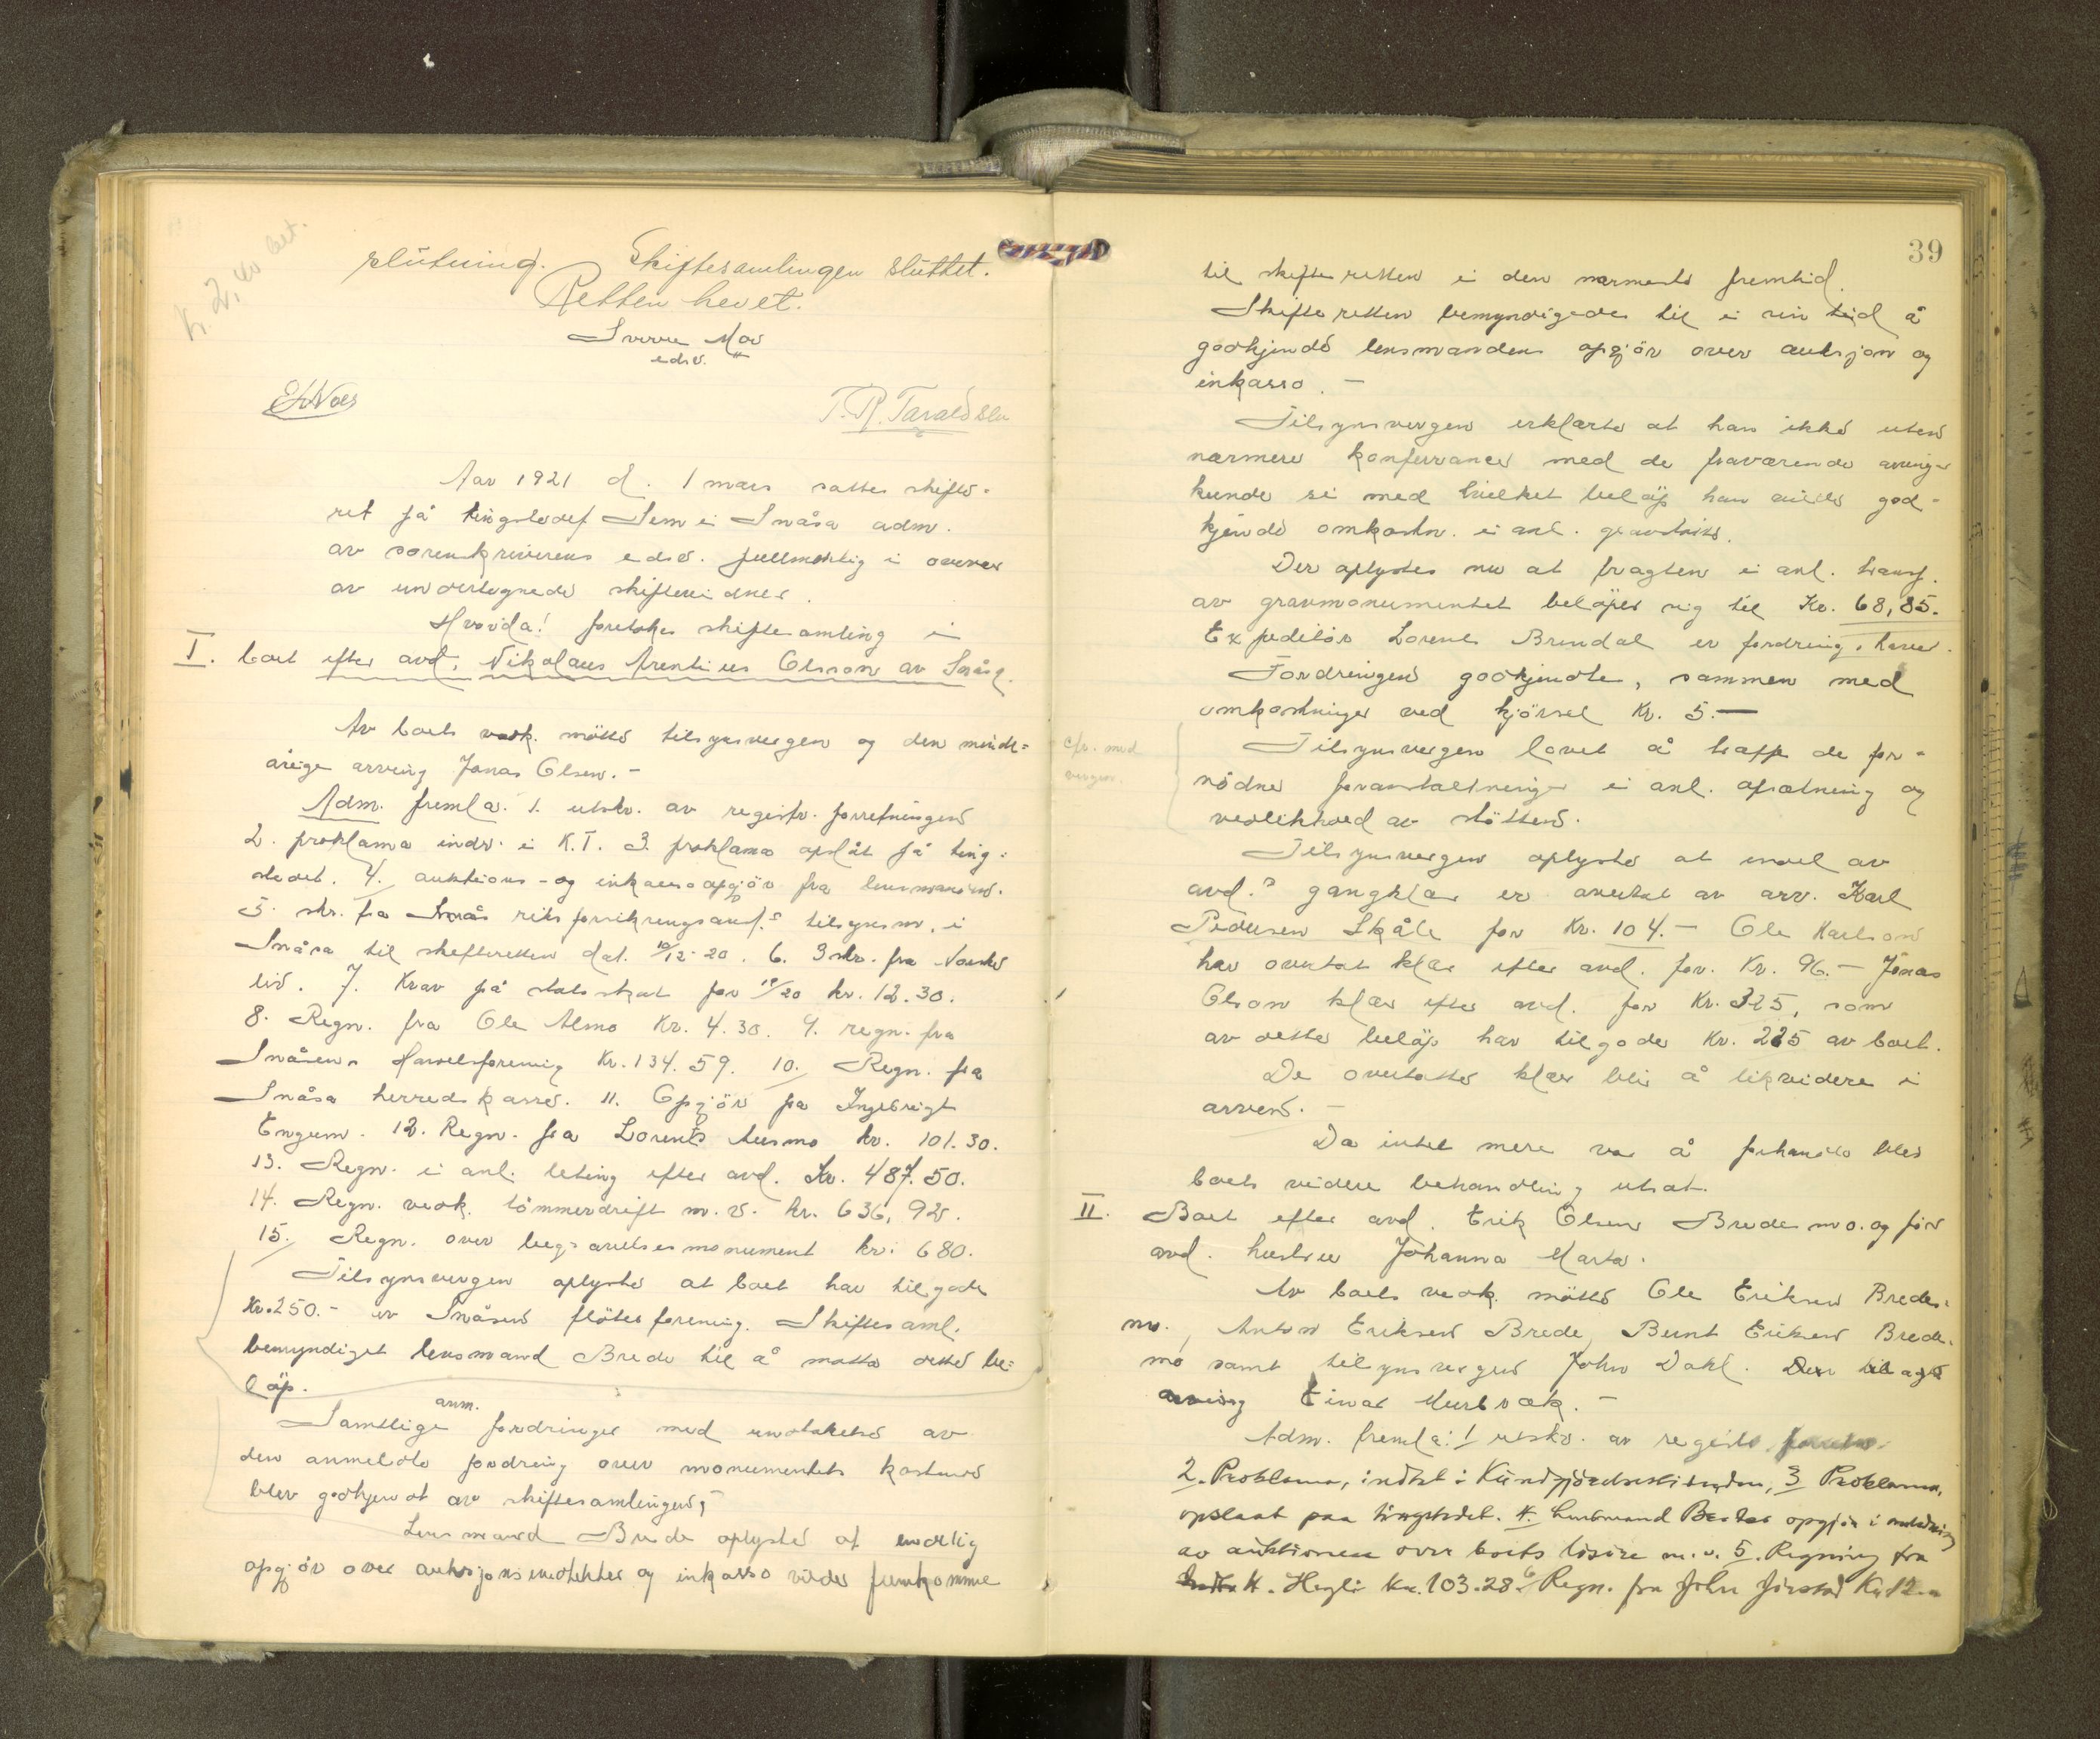 Kr. 2,40 bet.
slutning. Skiftesamlingen sluttet.
Retten hevet.
Sverre Mo
edsv.
T. R. Taraldsen
Aar 1921 d. 1 mars sattes skifte-
ret på tingstedet Sem i Snåsa adm.
av sorenskriverens edsv. fullmektig i overvær
av undertegnede skiftevidner.
Hvorda! foretokes skiftesamling i
I. boet efter avd. Nikolaus Arentius Olsson av Snåsa.
Av boets vedk. møtte tilsynsvergen og den minde-
årige arving Jonas Olsen. -
Adm. fremla. 1. utskr. av registr. forretningen
2. proklama indr. i K.T. 3. proklama opslåt på ting-
stedet. 4. auktions- og inkassoopgjör fra lensmanden.
5. skr. fra riksforsikringsanst.s tilsynsm. i
Snåsa til skifteretten dat. 10/12-20. 6. 3 skr. fra Norske
liv. 7. Krav på statsskat for 19/20 kr. 12.30.
8. Regn. fra Ole Almo Kr. 4.30. 9. regn. fra
Snåsens Handelsforening Kr. 134.59. 10. Regn. fra
Snåsa herredskasse. 11. Opgjör fra Ingebrigt
Engum. 12. Regn. fra Lorents Aursmo kr. 101.30.
13. Regn. i anl. leting efter avd. Kr. 487.50.
14. Regn. vedk. tömmerdrift m.v. kr. 636,92.
15. Regn. over begravelsesmonument kr. 680.
Tilsynsvergen oplyste at boet har tilgode
Kr. 250.- av Snåsen flöterforening. Skiftesaml.
bemyndiget lensmand Brede til å motta dette be-
löp.
anm.
Samtlige fordringer med undtakelse av
den anmeldte fordring over monumentets kostende
blev godkjendt av skiftesamlingen,
Lensmand Brede oplyste at endelig
opgjör over auksjonsindtekter og inkasso vilde fremkomme
39
til skifteretten i den nærmeste fremtid.
Skifteretten bemyndigedes til i sin tid å
godkjende lensmandens opgjör over auksjon og
inkasso. -
Tilsynsvergen erklærte at han ikke uten
nærmere konferrance med de fraværende arvinger
kunde si med hvilket belöp han vilde god-
kjende omkostn. i anl. gravstöte.
Der oplystes nu at fragten i anl. transp.
av gravmonumentet belöper sig til Kr. 68,85.
Expeditör Lorents Brendal er fordring.haver.
Fordringen godkjendte, sammen med
omkostninger ved kjörsel Kr. 5.-
cfr. med
vergen.
Tilsynsvergen lovet å træffe de for-
nödne foranstaltninger i anl. opsætning og
vedlikhold av stötten.
Tilsynsvergen oplyste at endel av
avd.s gangklær er overtat av arv. Karl
Pedersen Skåle for Kr. 104.- Ole Karlson
har overtat klær efter avd. for Kr. 96.- Jonas
Olson klær efter avd. for Kr. 325, som
av dette belöp har tilgode Kr. 225 av boet.
De overtatte klær blir å likvidere i
arven. -
Da intet mere var å forhandle blev
boets videre behandling utsat.
II. Boet efter avd. Erik Olsen Bredesmo. og för
avd. hustru Johanna Marta.
Av boets vedk. møtte Ole Eriksen Bredes-
mo, Anton Eriksen Brede, Bernt Eriksen Bredes-
mo samt tilsynsvergen John Dahl.
arving Einar
Adm. fremla: 1 utskr. av registr.
2. Proklama, indtat i Kundgjörelsestidenden, 3 Proklama,
opslaat paa tingstedet. 4. Lensmand Bredes opgjör i anledning
av auktionen over boets lösöre m.v. 5. Regning fra
K. Hegli Kr. 103.28. 6 Regn. fra John Jörstad Kr. 12.-